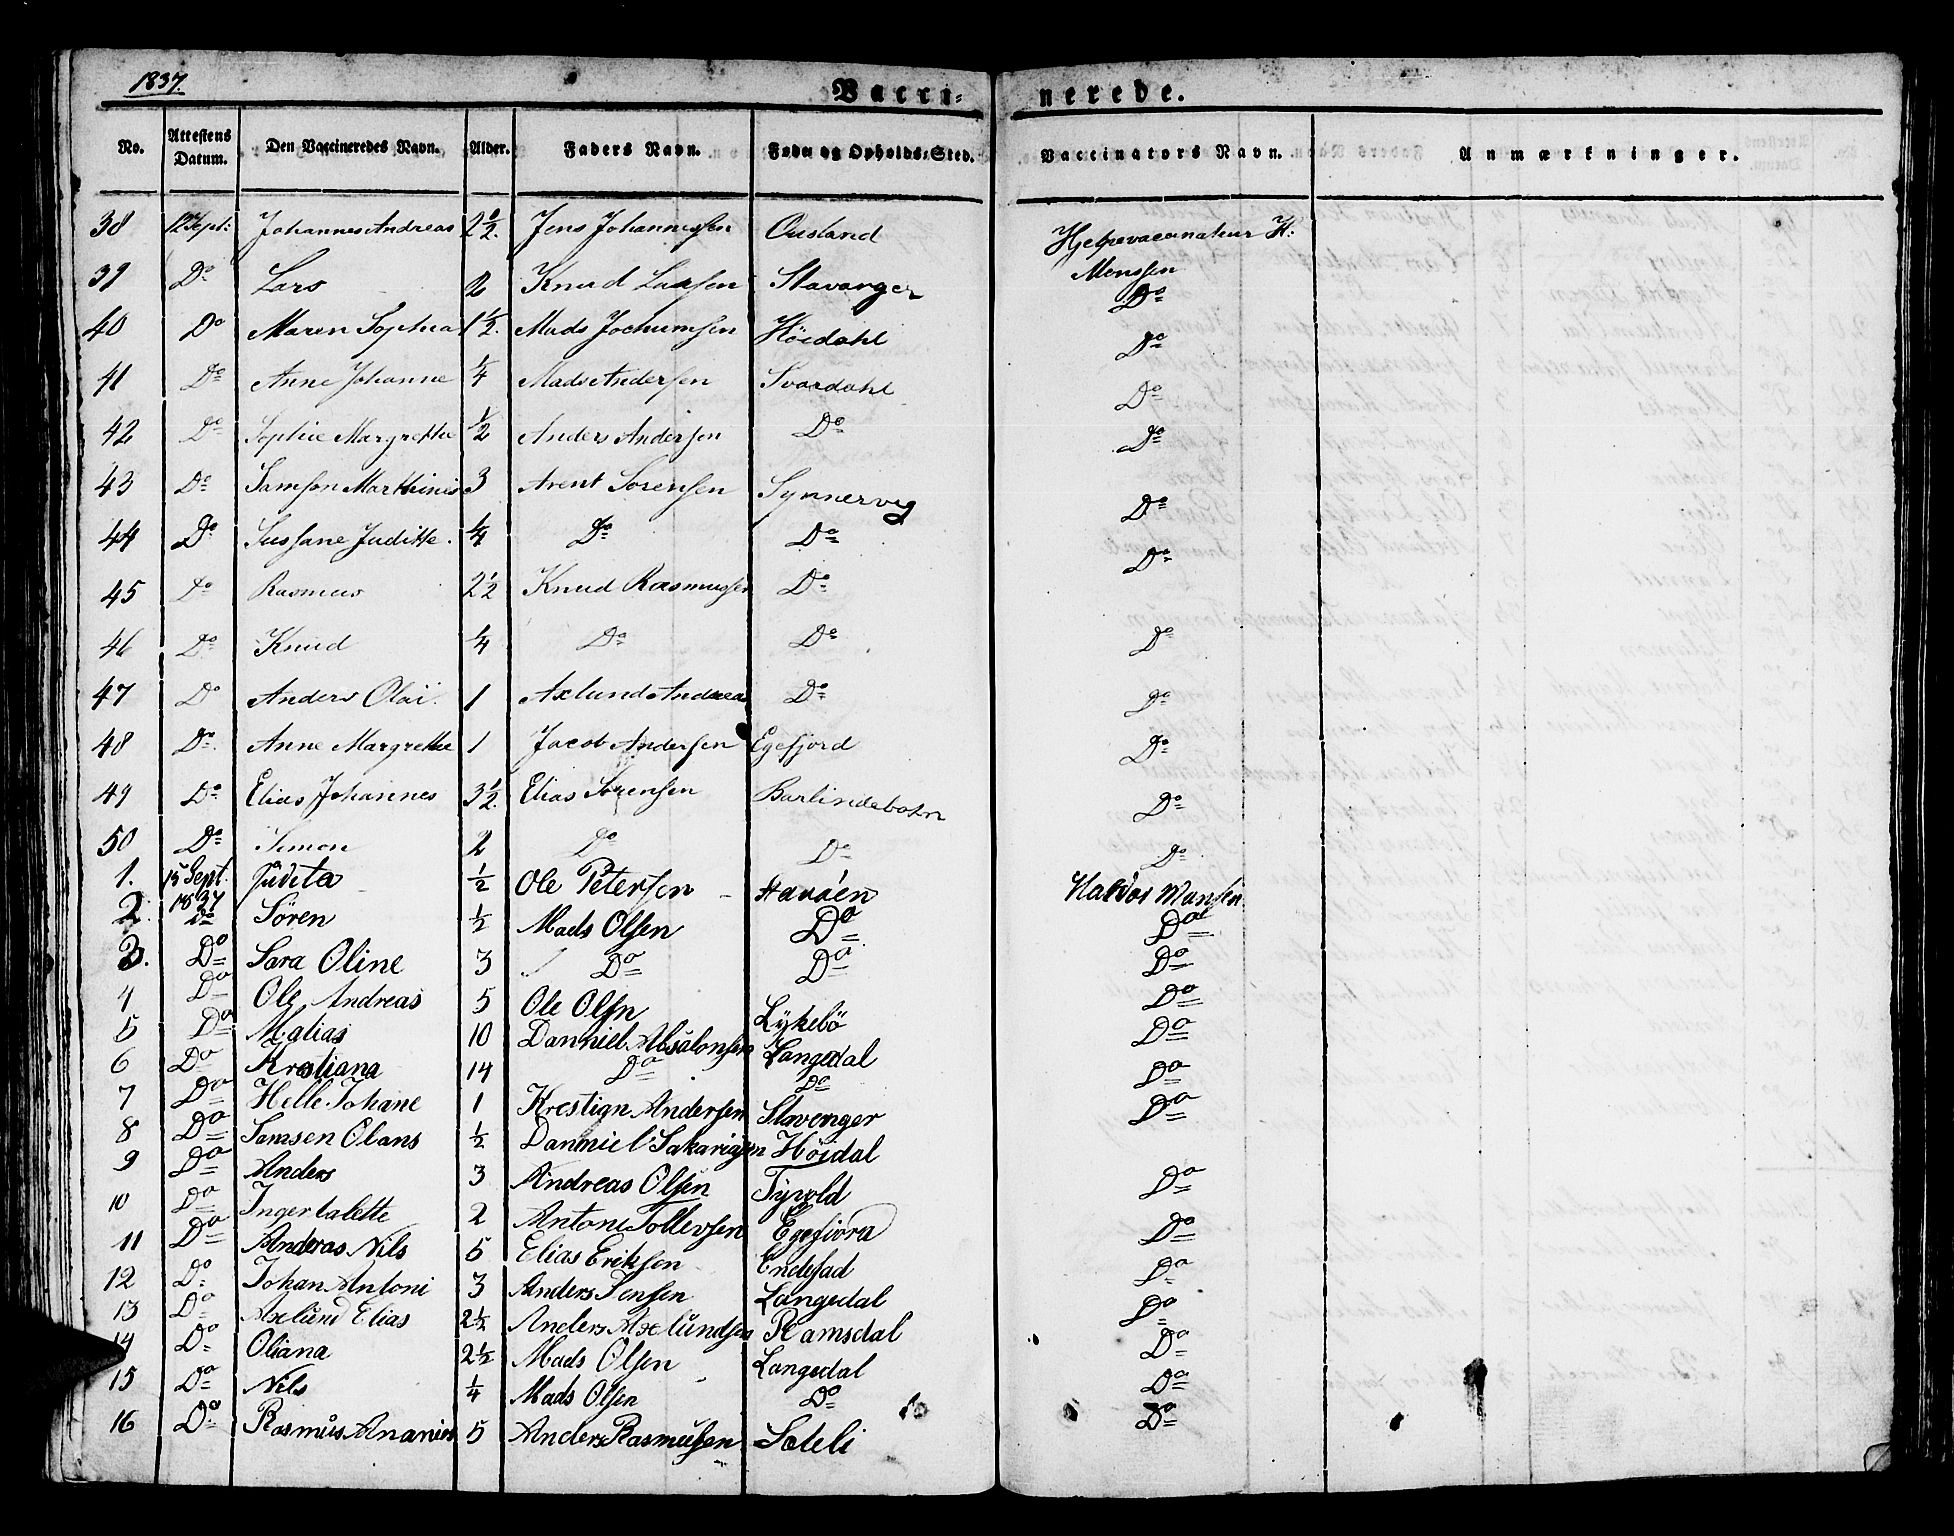 1837.
Vacci- nerede.
No. Attestens Datum. Den Vaccineredes Navn. Alder. Faders Navn. Føde og Opholds-Sted. Vaccinators Navn. Anmærkninger.
38 12 Sept: Johannes Andreas 2 1/2. Jens Johannessen Ousland Hjelpevaccinateur H: Monssen
39 Do Lars 2 Knud Larsen Stavanger Do
40 Do Maren Sophia 1 1/2. Mads Jochumsen Höidahl Do
41 Do Anne Johanne 1/4 Mads Andersen Svardahl Do
42 Do Sophie Margrethe 1/2 Anders Andersen Do Do
43 Do Samson Marthinis 3 Arent Sörensen Synnervig Do
44 Do Sussane Juditte. 1/4 Do Do Do
45 Do Rasmus 2 1/2 Knud Rasmussen Do
46 Do Knud 1/4 Do Do Do
47 Do Anders Olai. 1 Axlund Andreas Do Do
48 Do Anne Margrethe 1 Jacob Andersen Egefjord Do
49 Do Elias Johannes 3 1/2. Elias Sörensen Barlindebotn Do
50 Do Simon 2 Do Do Do
1. 15 Sept. 1837 Judeta 1/2 Ole Petersen Havöen
2. Do Sören 1/2 Mads Olsen Do Do
3. Do Sara Oline 3 Do Do Do
4 Do Ole Andreas 5 Ole Olsn Lykebö Do
5 Do Matias 10 Danniel Absalonsen Langedal Do
6 Do Krestiana 14 Do Do Do
7 Do Helle Johane 1 Krestian Andersen Stavenger Do
8 Do Samsen Olans 1/2 Danniel Sakariasen Höidal
9 Do Anders 3 Andreas Olsen Tyvold Do
10 Do Inger talette 2 Antoni Tollevsen Egefiora Do
11 Do Anderas Nils 5 Elias Eriksen Endesad Do
12 Do Johan Antoni 3 Anders Jensen Langedal Do
13 Do Axlund Elias 2 1/2 Anders Axlundsen Ramsdal Do
14 Do Oliana 2 1/2 Mads Olsen Langedal Do
15 Do Nils 1/4 Mads Olsen Do Do
16 Do Rasmus Ananias 5 Anders Rasmusen Sæteli